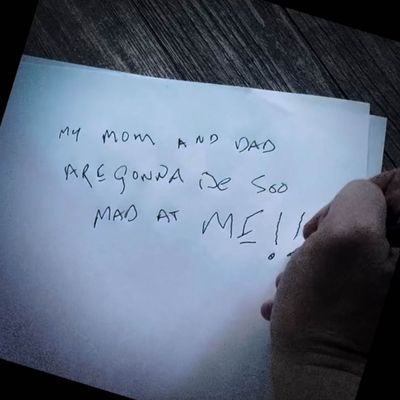 MY MOM AND DAD
ARE GONNA BE SOO
MAD AT ME!!